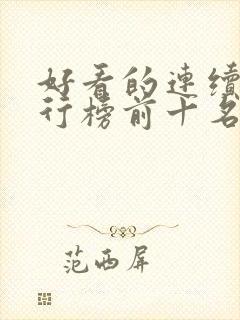 好看的連續
行榜前十名
范西屏